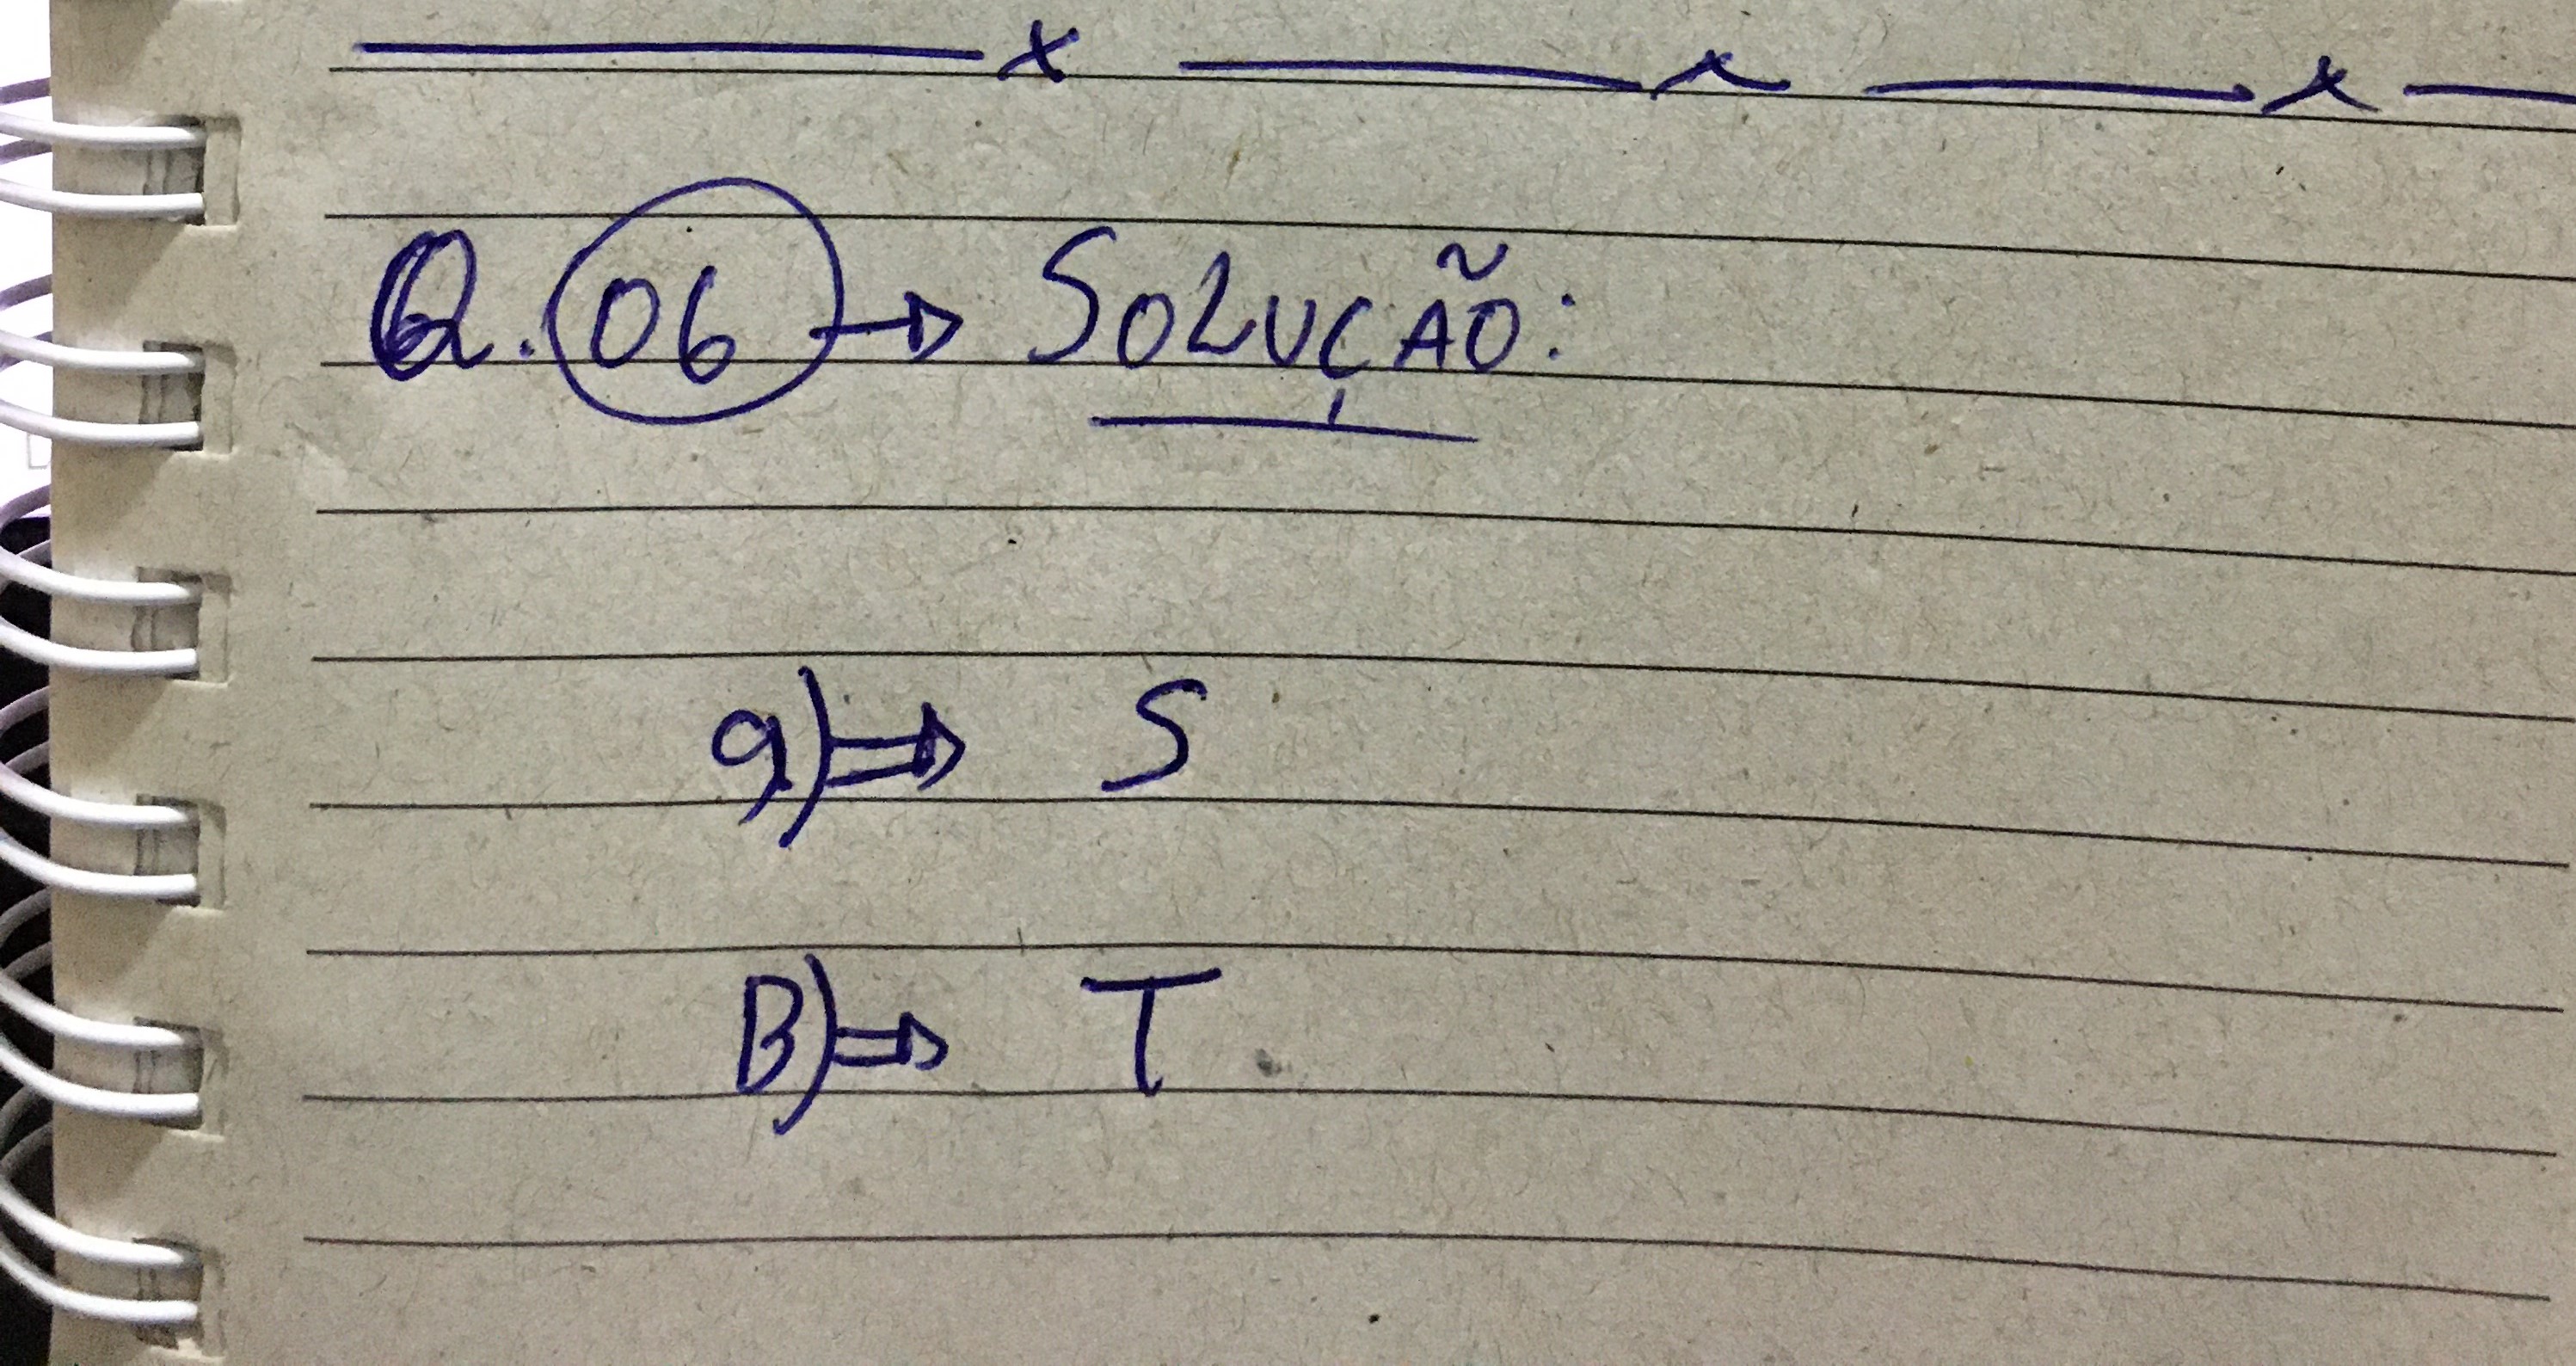 x x x
Q. 06 → SOLUÇÃO:
a) ⇒ S
B) ⇒ T